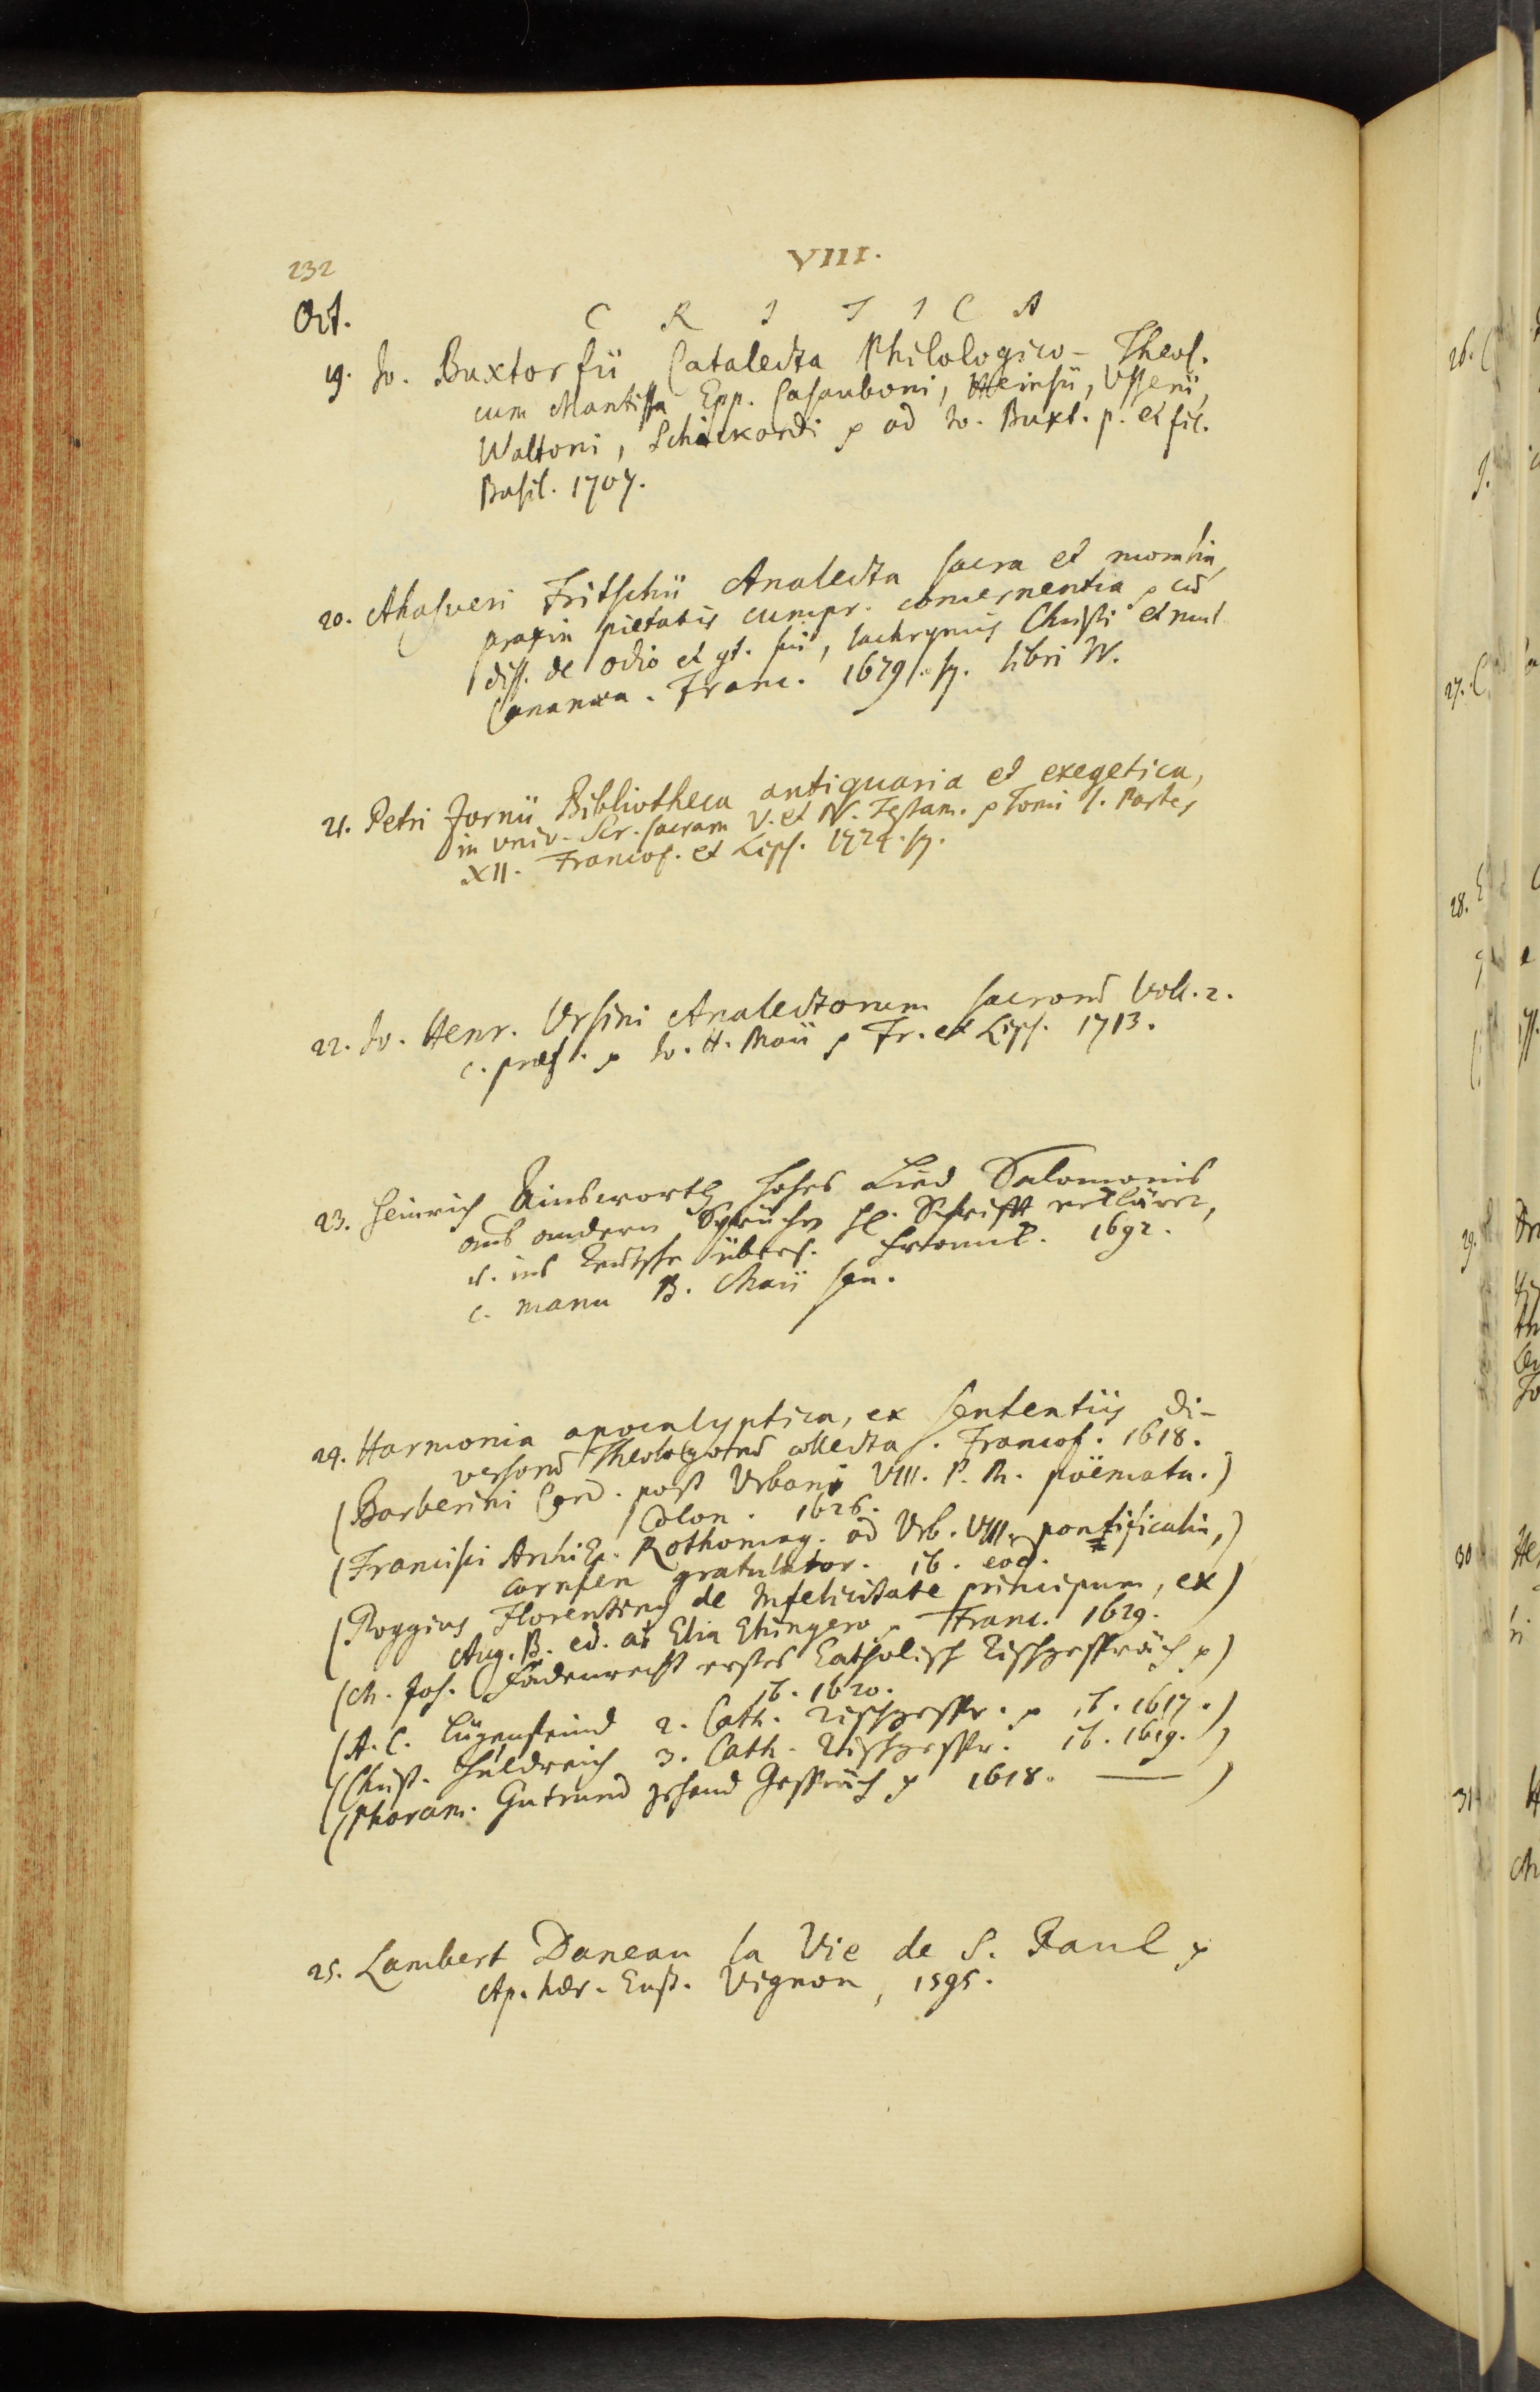 232
VIII.
Oct.
C R I T I C A
19. Jo. Buxtorfii Catalecta Philologico-Theol.
cum Mantissa Epp. Casauboni, Heinsii, Usserii,
Waltoni, Schickardi ad Jo. Buxt. p. et fil.
Basil. 1707.
20. Ahasveri Fritschii Analecta sacra et moralia,
praxin pietatis cumpr. concernentia
diss. de odio et sui, lachrymis Christi et mul.
Cananaea. Franc. 1679. sq. libri IV.
21. Petri Zornii Bibliotheca antiquaria et exegetica,
in univ. Scr. sacram V. et N. Testam. Tomi I. Partes
XII. Francof. et Lips. 1724. sq.
22. Jo. Henr. Ursini Analectorum sacrorum Voll. 2.
c. praef. Jo. H. Maii Fr. et Lips. 1713.
23. Heinrich Ainsworth hohes Lied Salomonis
aus andern Sprüchen hl. Schrifft erkläret,
u. ins Teutsche übers. 1692.
c. manu B. Maii sen.
24. Harmonia apocalyptica, ex sententiis di-
versorum Theologorum collecta. Francof. 1618.
(Barberini Card. post Urbani VIII. P. M. poëmata.)
Colon. 1626.
(Francisci Archiep. Rothomag. ad Urb. VIII. pontificatu,)
carmen gratulator. ib. eod.
(Poggius Florentinus de Infelicitate principum, ex)
Aug. B. ed. ab Elia Ehingero, Franc. 1629.
(M. Joh. Fädenrecht erstes Catholisch Tischgespräch)
ib. 1620.
(A. C. Lügenfeind 2. Cath. Tischgespr. ib. 1617.)
(Christ. Huldreich 3. Cath. Tischgespr. ib. 1619.)
(Pharam. Gutrund Gespräch 1618. —)
25. Lambert Daneau la Vie de S. Paul
Ap. haer. Eust. Vignon, 1595.
26.
27.
28.
29.
30
31